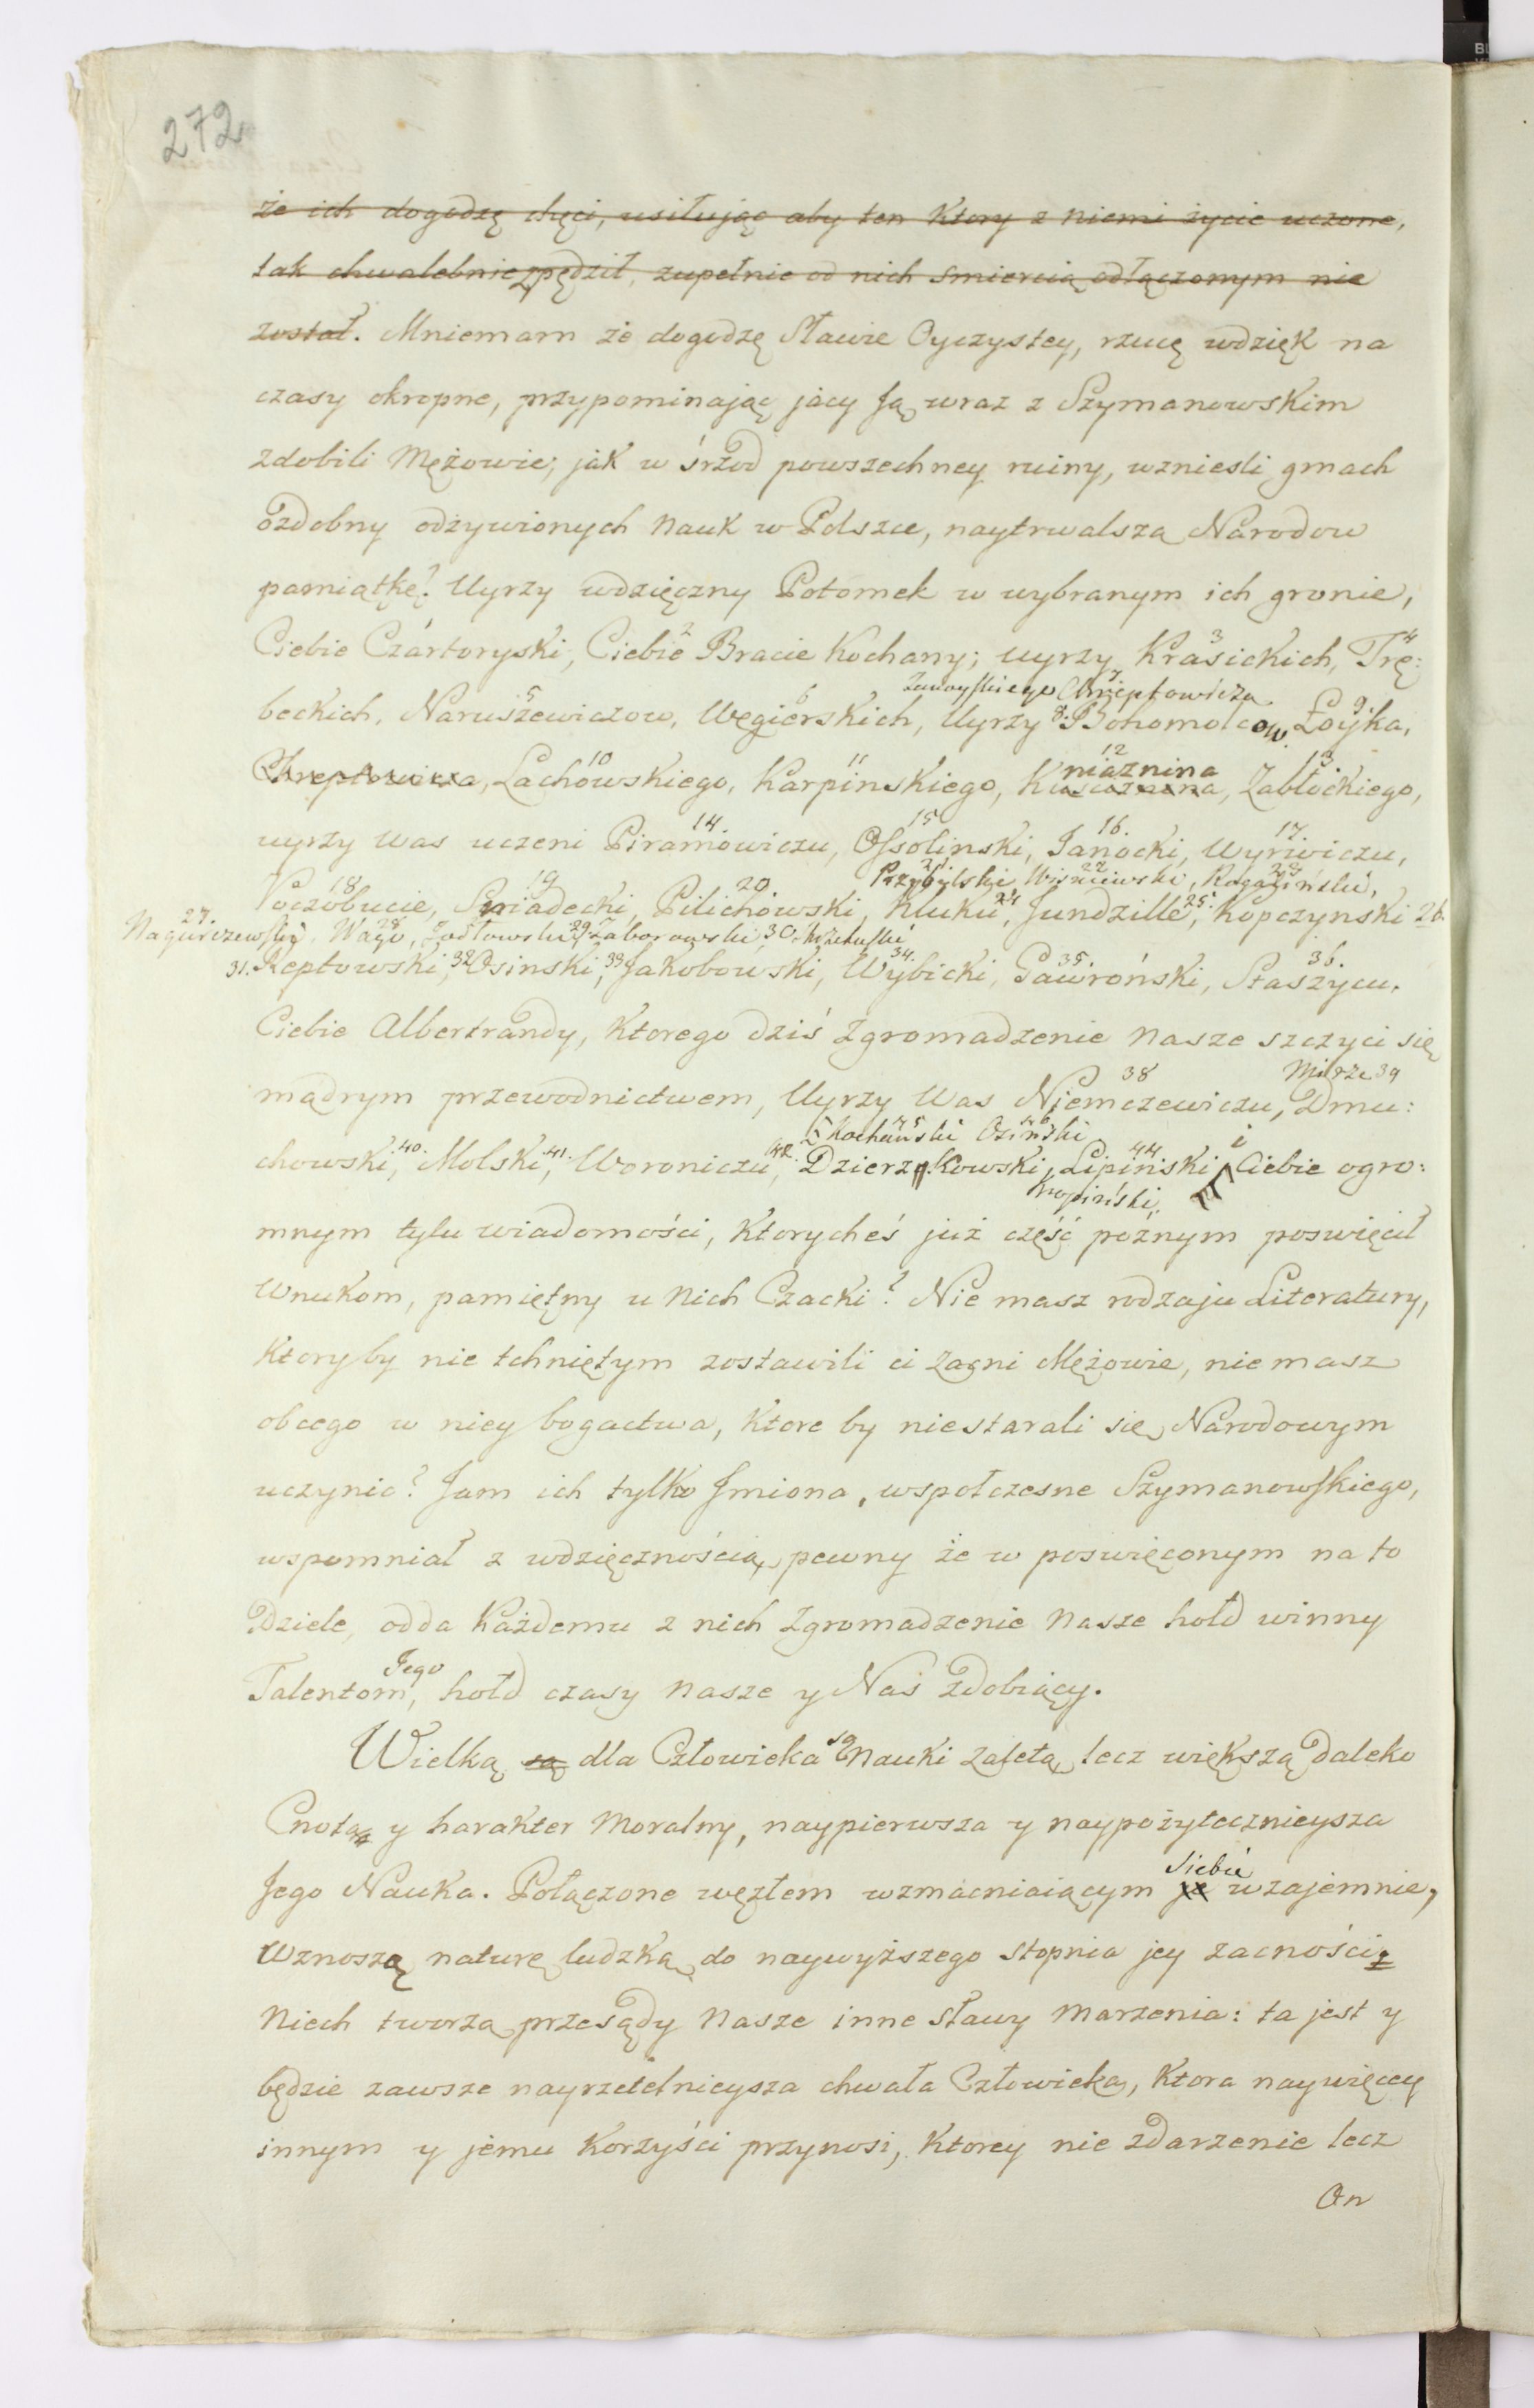 272
że ich dogodzę chęci, usiłując aby ten Ktory z niemi życie uczone,
tak chwalebnie pędził, zupełnie od nich smiercią odłączonym nie
został. Mniemam że dogodzę Sławie Oyczystey, rzucę wdzięk na
czasy okropne, przypominając jacy Ją wraz z Szymanowskim
zdobili Mężowie; jak w śrzod powszechney ruiny, wzniesli gmach
ozdobny odżywionych Nauk w Polszce, naytrwalszą Narodow
pamiątkę? Uyrzy wdzięczny Potomek w wybranym ich gronie,
2 3 4
Ciebie Czártoryski, Ciebie Bracie Kochany; uyrzy Krasickich, Trę:
Zamoyskiego Chreptowicza 7
5 6 8. 9.
beckich, Naruszewiczow, Węgierskich, Uyrzy Bohomolcow, Łoyka,
10 11 12 niaznina 13
Chreptowicza, Lachowskiego, Karpinskiego, Kniaznina, Zabłockiego,
14. 15 16. 17.
uyrzy was uczeni Piramowiczu, Ossolinski, Janocki, Wyrwiczu,
18 19 20. Przybylski 21. Wiszniewski 22, Rogaliński 23,
Poczobucie, Sniadecki, Pilichowski, Kluku 24, Jundzille 25, Kopczynski 26.
27. Nagurczewski, Wago 28, Jodłowski 29 Zaborowski 30
31. Reptowski, 32 Osinski, 33 Jakobowski, Wybicki 34., Gawroński 35., Staszycu 36.
Ciebie Albertrandy, Ktorego dziś Zgromadzenie Nasze szczyci się
38 Mierze 39
mądrym przewodnictwem, Uyrzy Was Niemczewiczu, Dmu:
Kochański 45 Osiński 46 i
chowski, 40. Molski, 41. Woroniczu, 42. Dzierzkowski, Lipiński 44 Ciebie ogro:
Kropiński,
mnym tylu wiadomości, Ktorycheś już część poźnym poswięcił
Wnukom, pamiętny u Nich Czacki? Nie masz rodzaju Literatury,
Ktoryby nie tchniętym zostawili ci Zacni Mężowie, nie masz
obcego w niey bogactwa, Ktore by nie starali się Narodowym
uczynic? Jam ich tylko Jmiona, wspołczesne Szymanowskiego,
wspomniał z wdzięcznością, pewny że w poswięconym na to
Dziele, odda Każdemu z nich Zgromadzenie Nasze hołd winny
Jego
Talentom, hołd czasy Nasze y Nas Zdobiący.
są
Wielką są dla Człowieka Nauki Zaletą, lecz większą daleko
Cnota y harakter Moralny, naypierwsza y naypożytecznieysza
siebie
Jego Nauka. Połączone węzłem wzmacniaiącym je wzajemnie,
Wznoszą naturę ludzką do naywyższego stopnia jey zacności.
Niech tworzą przesądy Nasze inne sławy Marzenia: ta jest y
będzie zawsze nayrzetelnieysza chwała Człowieka, Ktora naywięcey
innym y jemu Korzyści przynosi, Ktorey nie zdarzenie lecz
On